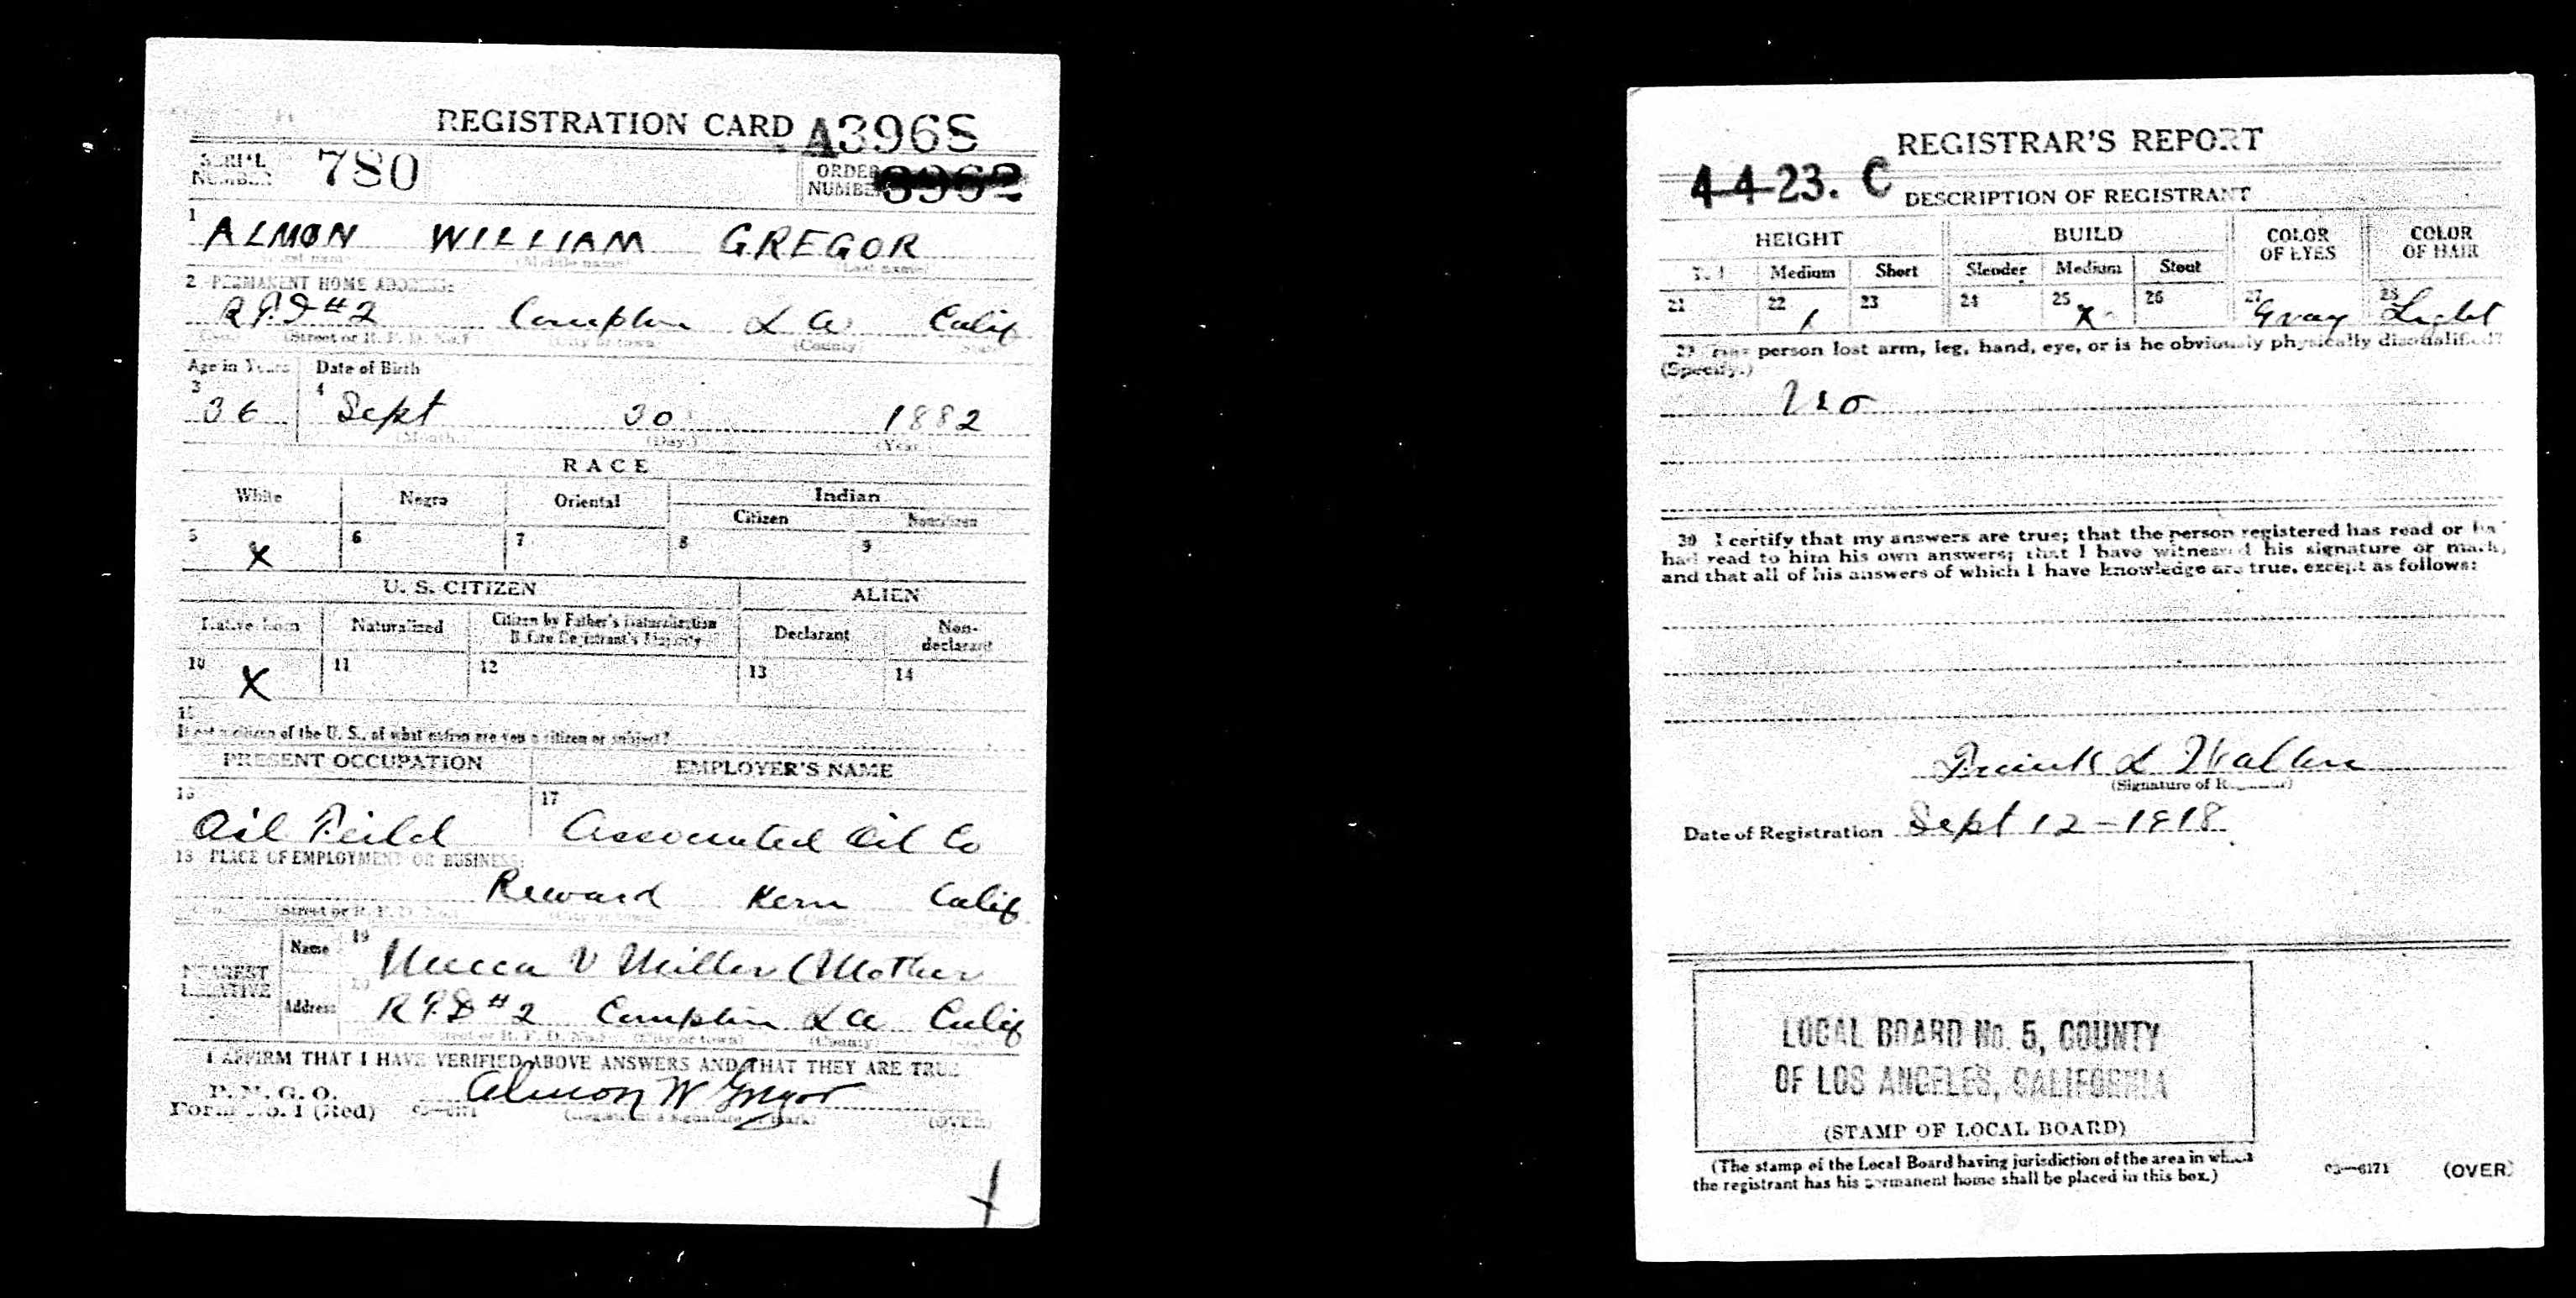 REGISTRATION CARD A3968
SERIAL NUMBER 780 ORDER NUMBER 3962
1 ALMON WILLIAM GREGOR
(First name) (Middle name) (Last name)
2 PERMANENT HOME ADDRESS:
R.F.D #2 Compton L A Calif
(No.) (Street or R. F. D. No.) (City or town) (County) (State)
Age in Years Date of Birth
3 36 4 Sept 30 1882
(Month.) (Day.) (Year)
RACE
White Negro Oriental Indian
Citizen Noncitizen
5 X 6 7 8 9
U. S. CITIZEN ALIEN
Native Born Naturalized Citizen by Father's Naturalization Before Registrant's Majority Declarant Non-declarant
10 X 11 12 13 14
15
If not a citizen of the U. S., of what nation are you a citizen or subject?
PRESENT OCCUPATION EMPLOYER'S NAME
16 Oil Feild 17 Associated Oil Co
18 PLACE OF EMPLOYMENT OR BUSINESS:
Reward Kern Calif
(No.) (Street or R. F. D. No.) (City or town) (County) (State)
NEAREST RELATIVE Name 19 V Miller (Mother
Address 20 R.F.D #2 Compton L A Calif
(Street or R. F. D. No.) (City or town) (County) (State)
I AFFIRM THAT I HAVE VERIFIED ABOVE ANSWERS AND THAT THEY ARE TRUE
P. M. G. O.
Form No. 1 (Red) 03—6171 Almon W Gregor
(Registrant's signature or mark) (OVER)
REGISTRAR'S REPORT
4-4-23. C DESCRIPTION OF REGISTRANT
HEIGHT BUILD COLOR OF EYES COLOR OF HAIR
Tall Medium Short Slender Medium Stout
21 22 / 23 24 25 X 26 27 Gray 28 Light
29 Has person lost arm, leg, hand, eye, or is he obviously physically disqualified?
(Specify.)
No
30 I certify that my answers are true; that the person registered has read or has
had read to him his own answers; that I have witnessed his signature or mark,
and that all of his answers of which I have knowledge are true, except as follows:
Frank L
(Signature of Registrar)
Date of Registration Sept 12-1918
LOCAL BOARD No. 5, COUNTY
OF LOS ANGELES, CALIFORNIA
(STAMP OF LOCAL BOARD)
(The stamp of the Local Board having jurisdiction of the area in which
the registrant has his permanent home shall be placed in this box.)
03—6171 (OVER)